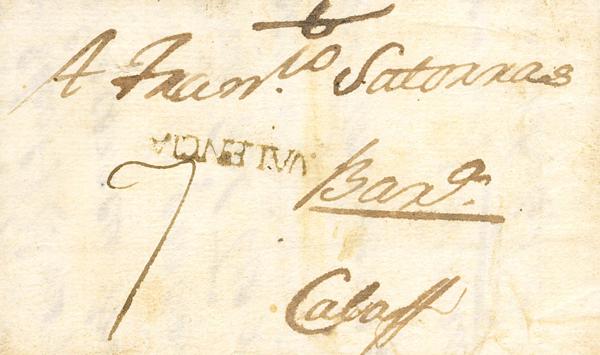 A Fran.co Satorras
VALENCIA
7
Bar.a
Cabaff